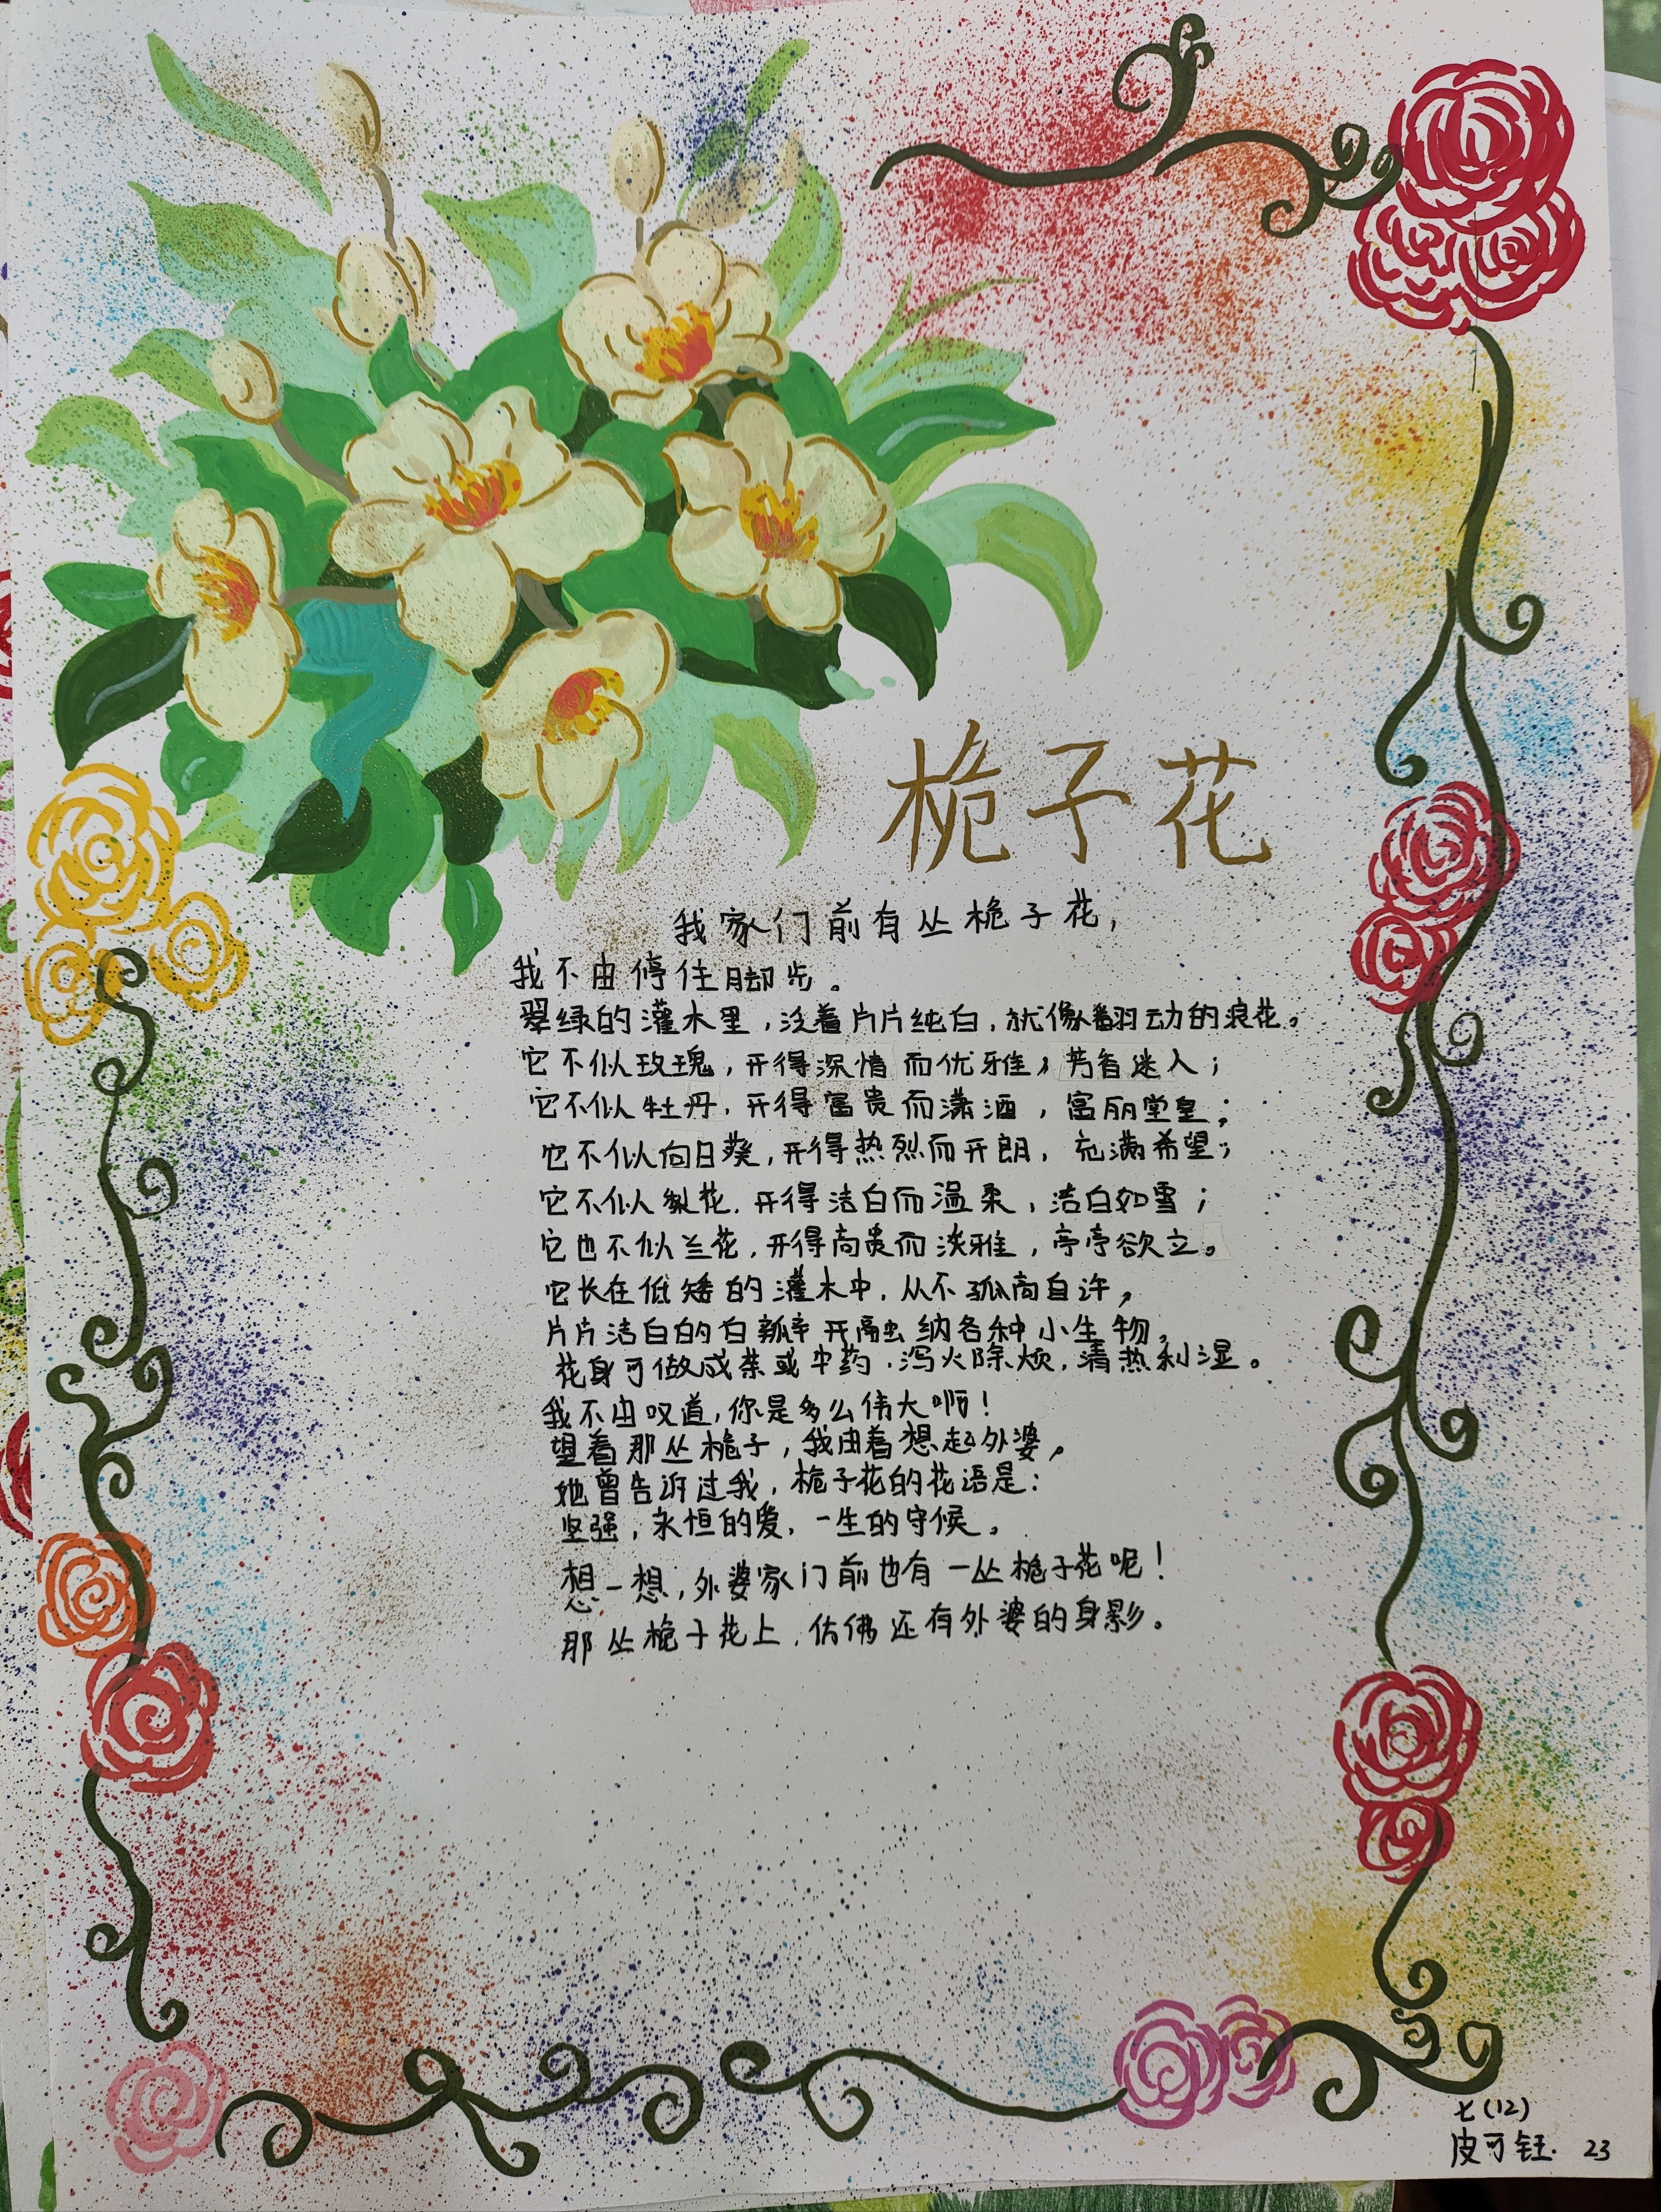 栀子花
我家门前有丛栀子花，
我不由停住脚步。
翠绿的灌木里，泛着片片纯白，就像翻动的浪花。
它不似玫瑰，开得深情而优雅，芳香迷人；
它不似牡丹，开得富贵而潇洒，富丽堂皇；
它不似向日葵，开得热烈而开朗，充满希望；
它不似梨花，开得洁白而温柔，洁白如雪；
它也不似兰花，开得高贵而淡雅，亭亭欲立。
它长在低矮的灌木中，从不孤高自许，
片片洁白的白瓣开融纳各种小生物，
花身可做成茶或中药，泻火除烦，清热利湿。
我不由叹道，你是多么伟大啊！
望着那丛栀子，我由着想起外婆，
她曾告诉过我，栀子花的花语是：
坚强，永恒的爱，一生的守候。
想一想，外婆家门前也有一丛栀子花呢！
那丛栀子花上，仿佛还有外婆的身影。
七（12）
皮可钰. 23